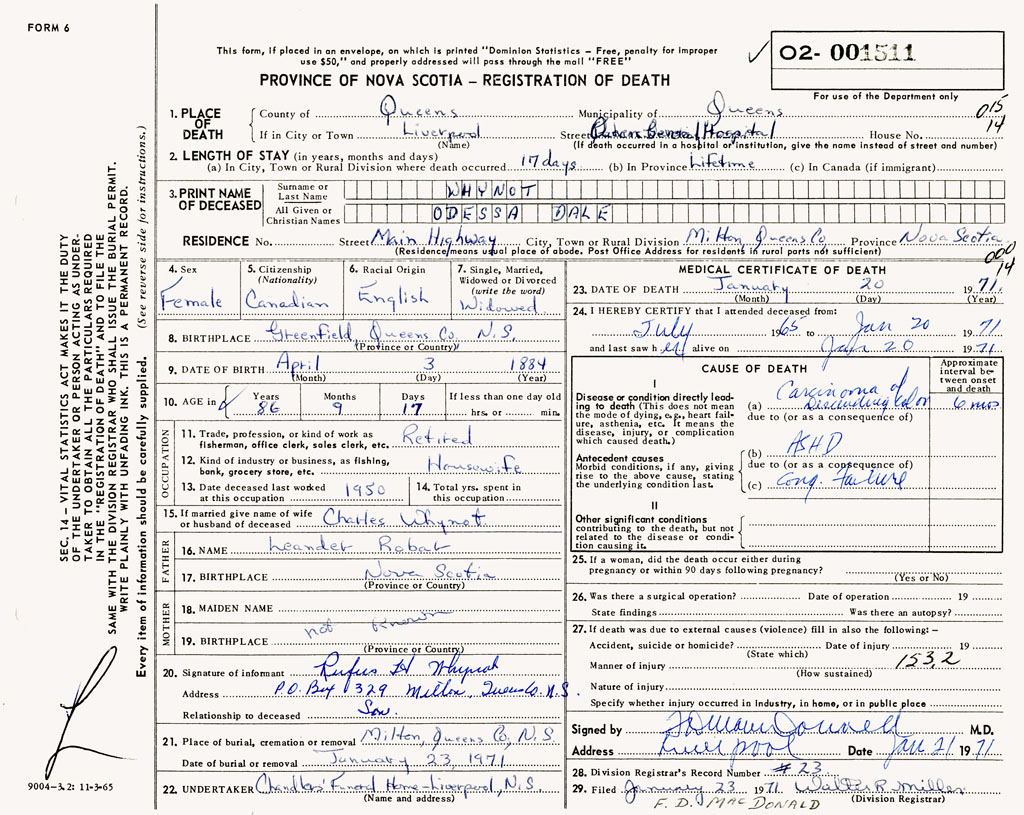 FORM 6
This form, if placed in an envelope, on which is printed "Dominion Statistics – Free, penalty for improper
use $50," and properly addressed will pass through the mail "FREE"
PROVINCE OF NOVA SCOTIA – REGISTRATION OF DEATH
✓ 02- 001511
For use of the Department only
015
14
1. PLACE OF DEATH County of Queens Municipality of Queens
If in City or Town Liverpool Street Queens General Hospital House No.
(Name) (If death occurred in a hospital or institution, give the name instead of street and number)
2. LENGTH OF STAY (in years, months and days)
(a) In City, Town or Rural Division where death occurred 17 days (b) In Province Lifetime (c) In Canada (if immigrant)
3. PRINT NAME OF DECEASED
Surname or Last Name WHYNOT
All Given or Christian Names ODESSA DALE
RESIDENCE No. Street Main Highway City, Town or Rural Division Milton, Queens Co Province Nova Scotia
(Residence means usual place of abode. Post Office Address for residents in rural parts not sufficient)
000
14
4. Sex Female
5. Citizenship (Nationality) Canadian
6. Racial Origin English
7. Single, Married, Widowed or Divorced (write the word) Widowed
8. BIRTHPLACE Greenfield, Queens Co, N.S.
(Province or Country)
9. DATE OF BIRTH April 3 1884
(Month) (Day) (Year)
10. AGE in ✓ Years 86 Months 9 Days 17 If less than one day old hrs. or min.
OCCUPATION
11. Trade, profession, or kind of work as fisherman, office clerk, sales clerk, etc. Retired
12. Kind of industry or business, as fishing, bank, grocery store, etc. Housewife
13. Date deceased last worked at this occupation 1950
14. Total yrs. spent in this occupation
15. If married give name of wife or husband of deceased Charles Whynot
FATHER
16. NAME Leander Robar
17. BIRTHPLACE Nova Scotia
(Province or Country)
MOTHER
18. MAIDEN NAME
not known
19. BIRTHPLACE
(Province or Country)
20. Signature of informant Rufus H Whynot
Address P.O. Box 329 Milton, Queens Co. N.S.
Relationship to deceased Son.
21. Place of burial, cremation or removal Milton, Queens Co, N.S.
Date of burial or removal January 23, 1971
22. UNDERTAKER Chandlers' Funeral Home-Liverpool, N.S.
(Name and address)
MEDICAL CERTIFICATE OF DEATH
23. DATE OF DEATH January 20 1971
(Month) (Day) (Year)
24. I HEREBY CERTIFY that I attended deceased from:
July 1965 to Jan 20 1971
and last saw her alive on Jan 20 1971
CAUSE OF DEATH
Approximate interval between onset and death
I
Disease or condition directly leading to death (This does not mean the mode of dying, e.g., heart failure, asthenia, etc. It means the disease, injury, or complication which caused death.)
(a) Carcinoma of Descending Colon 6 mos
due to (or as a consequence of)
Antecedent causes
Morbid conditions, if any, giving rise to the above cause, stating the underlying condition last.
(b) ASHD
due to (or as a consequence of)
(c) Cong. Failure
II
Other significant conditions
contributing to the death, but not related to the disease or condition causing it.
25. If a woman, did the death occur either during
pregnancy or within 90 days following pregnancy?
(Yes or No)
26. Was there a surgical operation? Date of operation 19
State findings Was there an autopsy?
27. If death was due to external causes (violence) fill in also the following: –
Accident, suicide or homicide? Date of injury 19
(State which)
153.2
Manner of injury
(How sustained)
Nature of injury
Specify whether injury occurred in Industry, in home, or in public place
Signed by M.D.
Address Liverpool Date Jan 21 1971
28. Division Registrar's Record Number #23
29. Filed January 23 1971 Walter R. Miller
(Division Registrar)
F. D. MACDONALD
SEC. 14 – VITAL STATISTICS ACT MAKES IT THE DUTY
OF THE UNDERTAKER OR PERSON ACTING AS UNDER-
TAKER TO OBTAIN ALL THE PARTICULARS REQUIRED
IN THE "REGISTRATION OF DEATH" AND TO FILE THE
SAME WITH THE DIVISION REGISTRAR WHO SHALL ISSUE THE BURIAL PERMIT.
WRITE PLAINLY WITH UNFADING INK. THIS IS A PERMANENT RECORD.
Every item of information should be carefully supplied. (See reverse side for instructions.)
9004-3.2: 11-3-65